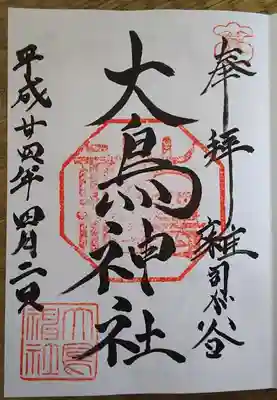 奉拝 雑司が谷
大鳥神社
平成廿四年四月二日
大鳥神社